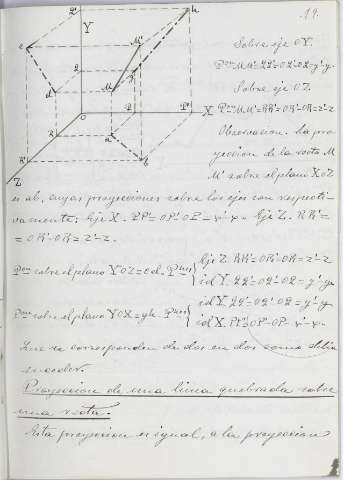 19.
Q'
h
Y
c
M'
Q
g
d
M
O
P
P'
X
R
a
R'
b
Z
Sobre eje OY.
Pᵒⁿ MM'=QQ'=OQ'-OQ=y'-y
Sobre eje OZ.
Pᵒⁿ MM'=RR'=OR'-OR=z'-z
Observacion. La pro
yeccion de la recta M
M' sobre el plano XOZ
es ab, cuyas proyecciones sobre los ejes son respecti-
vamente: Eje X. PP'=OP'-OP=x'-x. Eje Z. RR'=
=OR'-OR=z'-z.
Pᵒⁿ sobre el plano YOZ=cd. Pⁿᵉˢ { Eje Z. RR'=OR'-OR=z'-z
id Y. QQ'=OQ'-OQ=y'-y
Pᵒⁿ sobre el plano YOX=gh. Pⁿᵉˢ { id Y. QQ'=OQ'-OQ=y'-y
id X. PP'=OP'-OP=x'-x.
Que se corresponden de dos en dos como debia
suceder.
Proyeccion de una linea quebrada sobre
una recta.
Esta proyeccion es igual, a la proyeccion